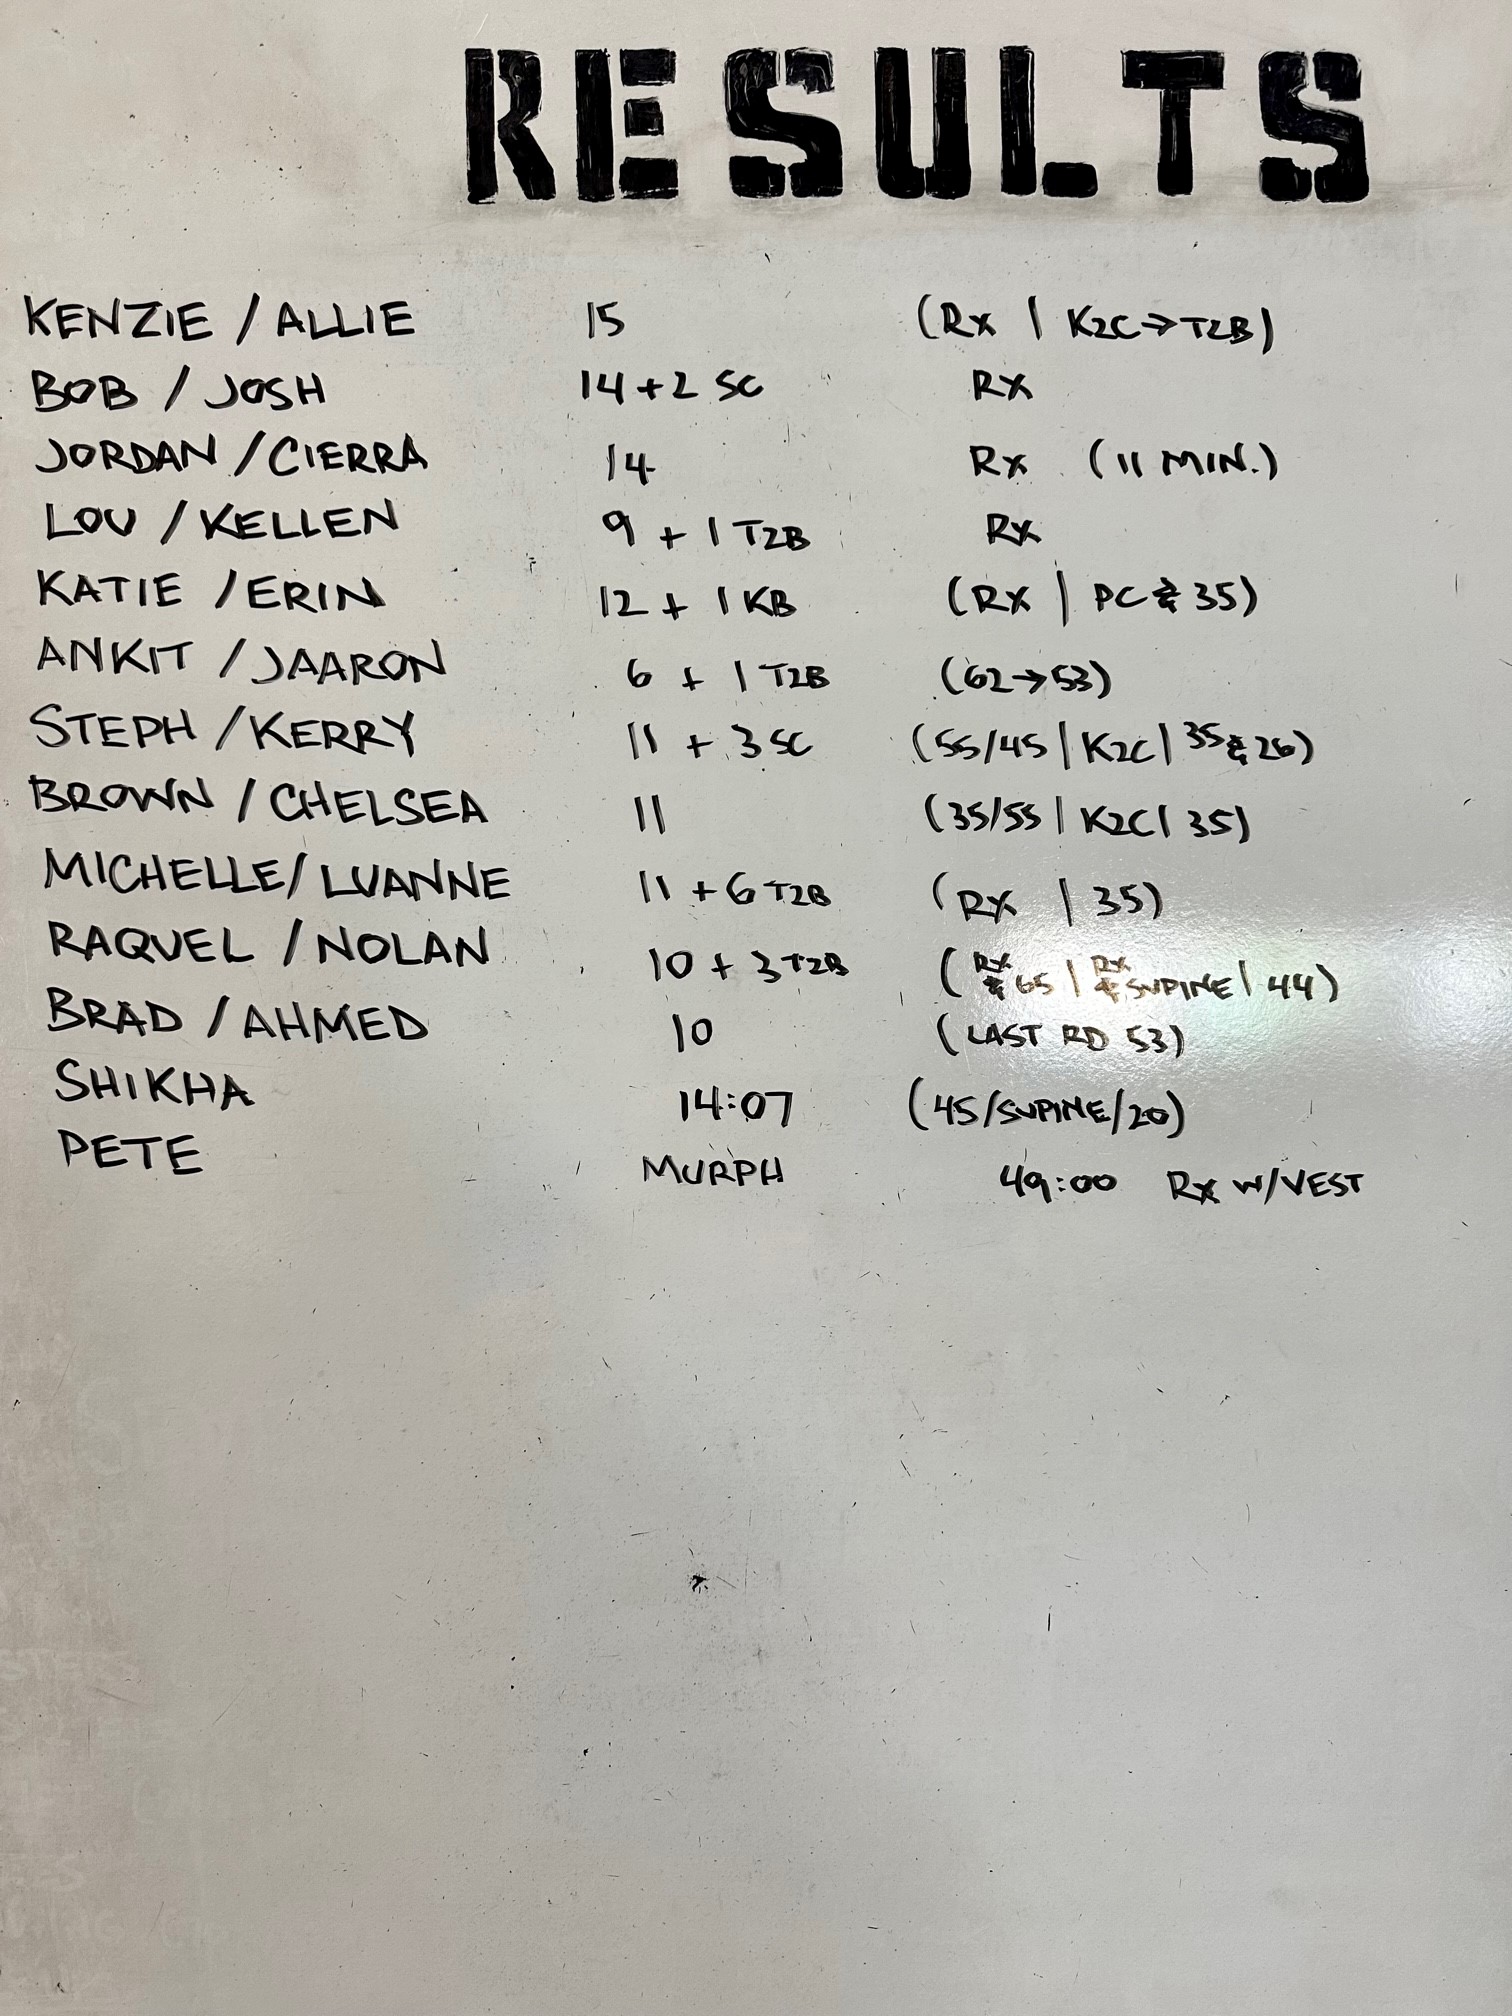 RESULTS
KENZIE / ALLIE 15 (Rx | K2C→T2B)
BOB / JOSH 14 + 2 SC Rx
JORDAN / CIERRA 14 Rx (11 MIN.)
LOU / KELLEN 9 + 1 T2B Rx
KATIE / ERIN 12 + 1 KB (Rx | PC & 35)
ANKIT / JAARON 6 + 1 T2B (62→53)
STEPH / KERRY 11 + 3 SC (55/45 | K2C | 35 & 26)
BROWN / CHELSEA 11 (35/55 | K2C | 35)
MICHELLE / LUANNE 11 + 6 T2B (Rx | 35)
RAQUEL / NOLAN 10 + 3 T2B (Rx & 65 | Rx & SUPINE | 44)
BRAD / AHMED 10 (LAST RD 53)
SHIKHA 14:07 (45/SUPINE/20)
PETE MURPH 49:00 Rx W/VEST